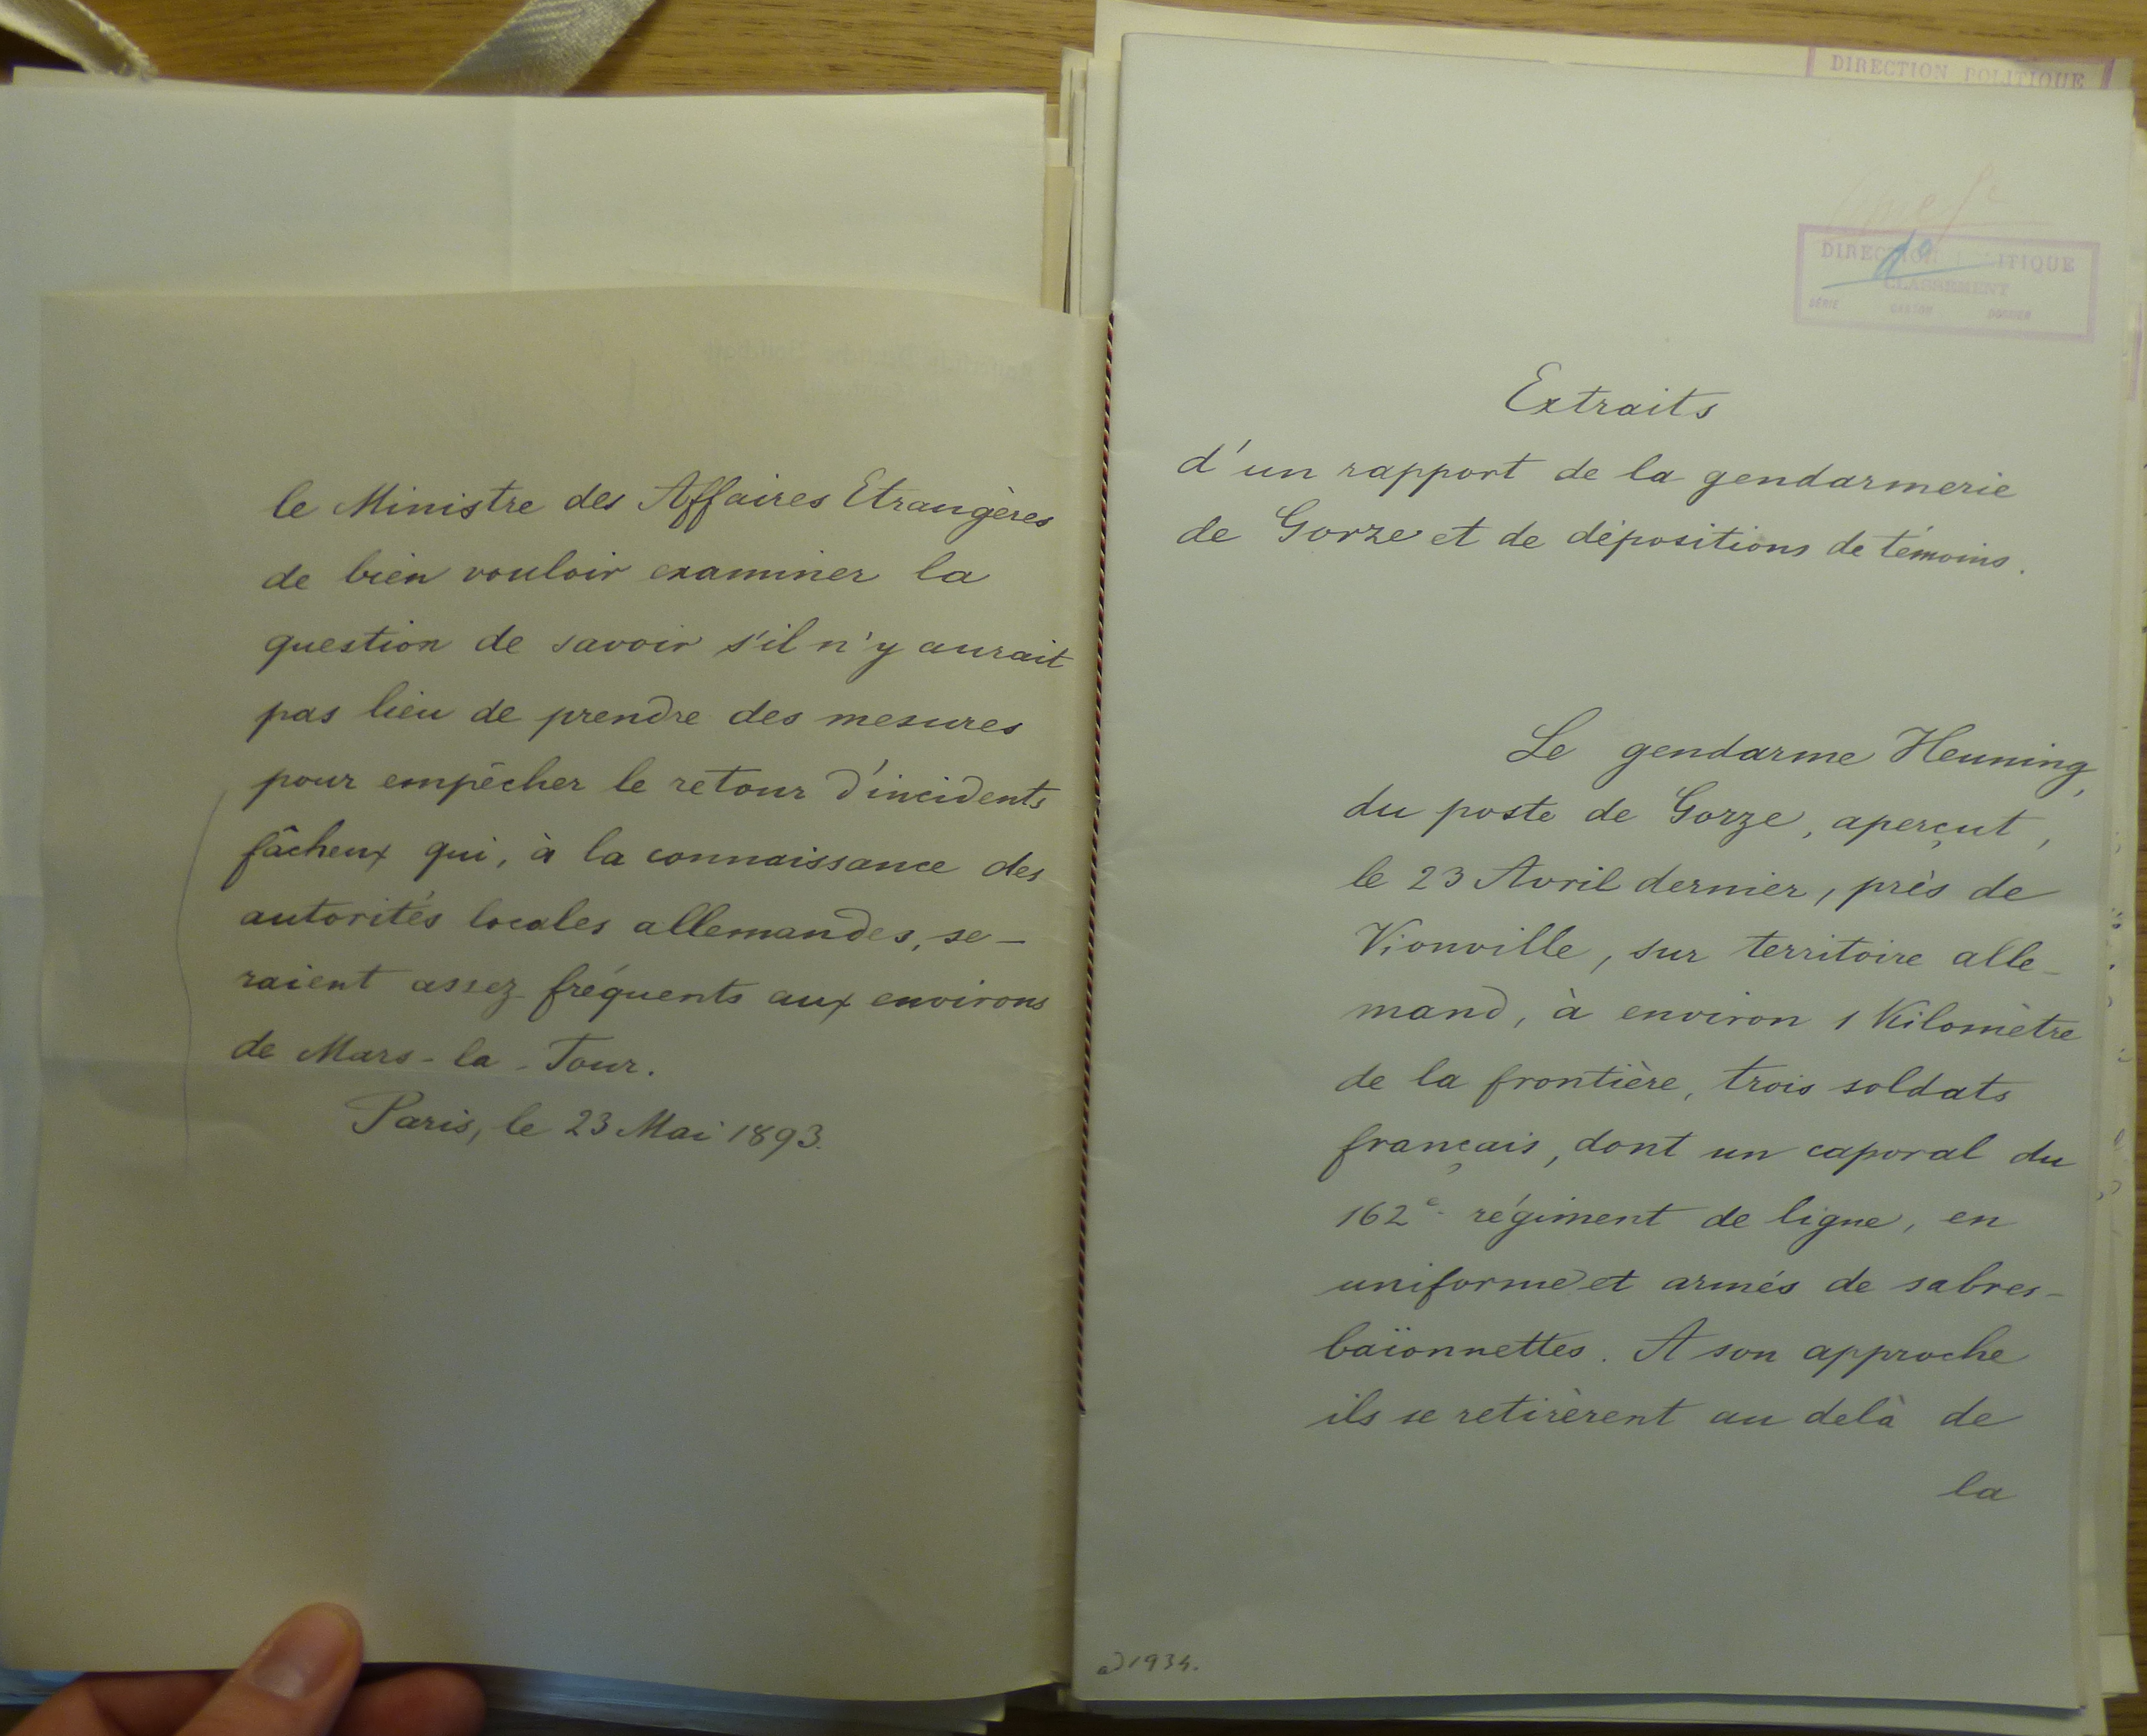 le Ministre des Affaires Etrangères
de bien vouloir examiner la
question de savoir s'il n'y aurait
pas lieu de prendre des mesures
pour empêcher le retour d'incidents
fâcheux qui, à la connaissance des
autorités locales allemandes, se-
raient assez fréquents aux environs
de Mars-la-Tour.
Paris, le 23 Mai 1893.
DIRECTION POLITIQUE
DIRECTION POLITIQUE
CLASSEMENT
SÉRIE CARTON DOSSIER
Extraits
d'un rapport de la gendarmerie
de Gorze et de dépositions de témoins.
Le gendarme Heuning,
du poste de Gorze, aperçut,
le 23 Avril dernier, près de
Vionville, sur territoire alle-
mand, à environ 1 Kilomètre
de la frontière, trois soldats
français, dont un caporal du
162e régiment de ligne, en
uniforme et armés de sabres-
baïonnettes. A son approche
ils se retirèrent au delà de
la
ad 1934.